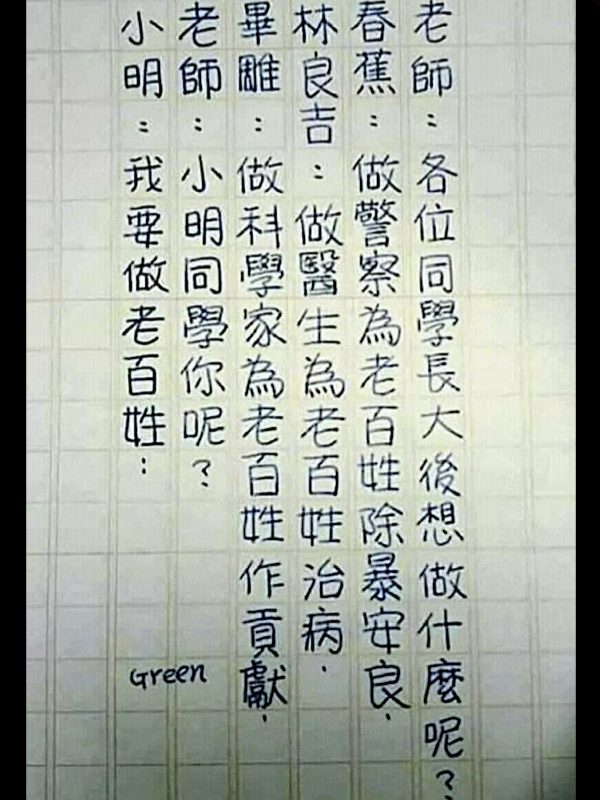 老師：各位同學長大後想做什麼呢？
春蕉：做警察為老百姓除暴安良．
林良吉：做醫生為老百姓治病．
畢雕：做科學家為老百姓作貢獻．
老師：小明同學你呢？
小明：我要做老百姓：
Green